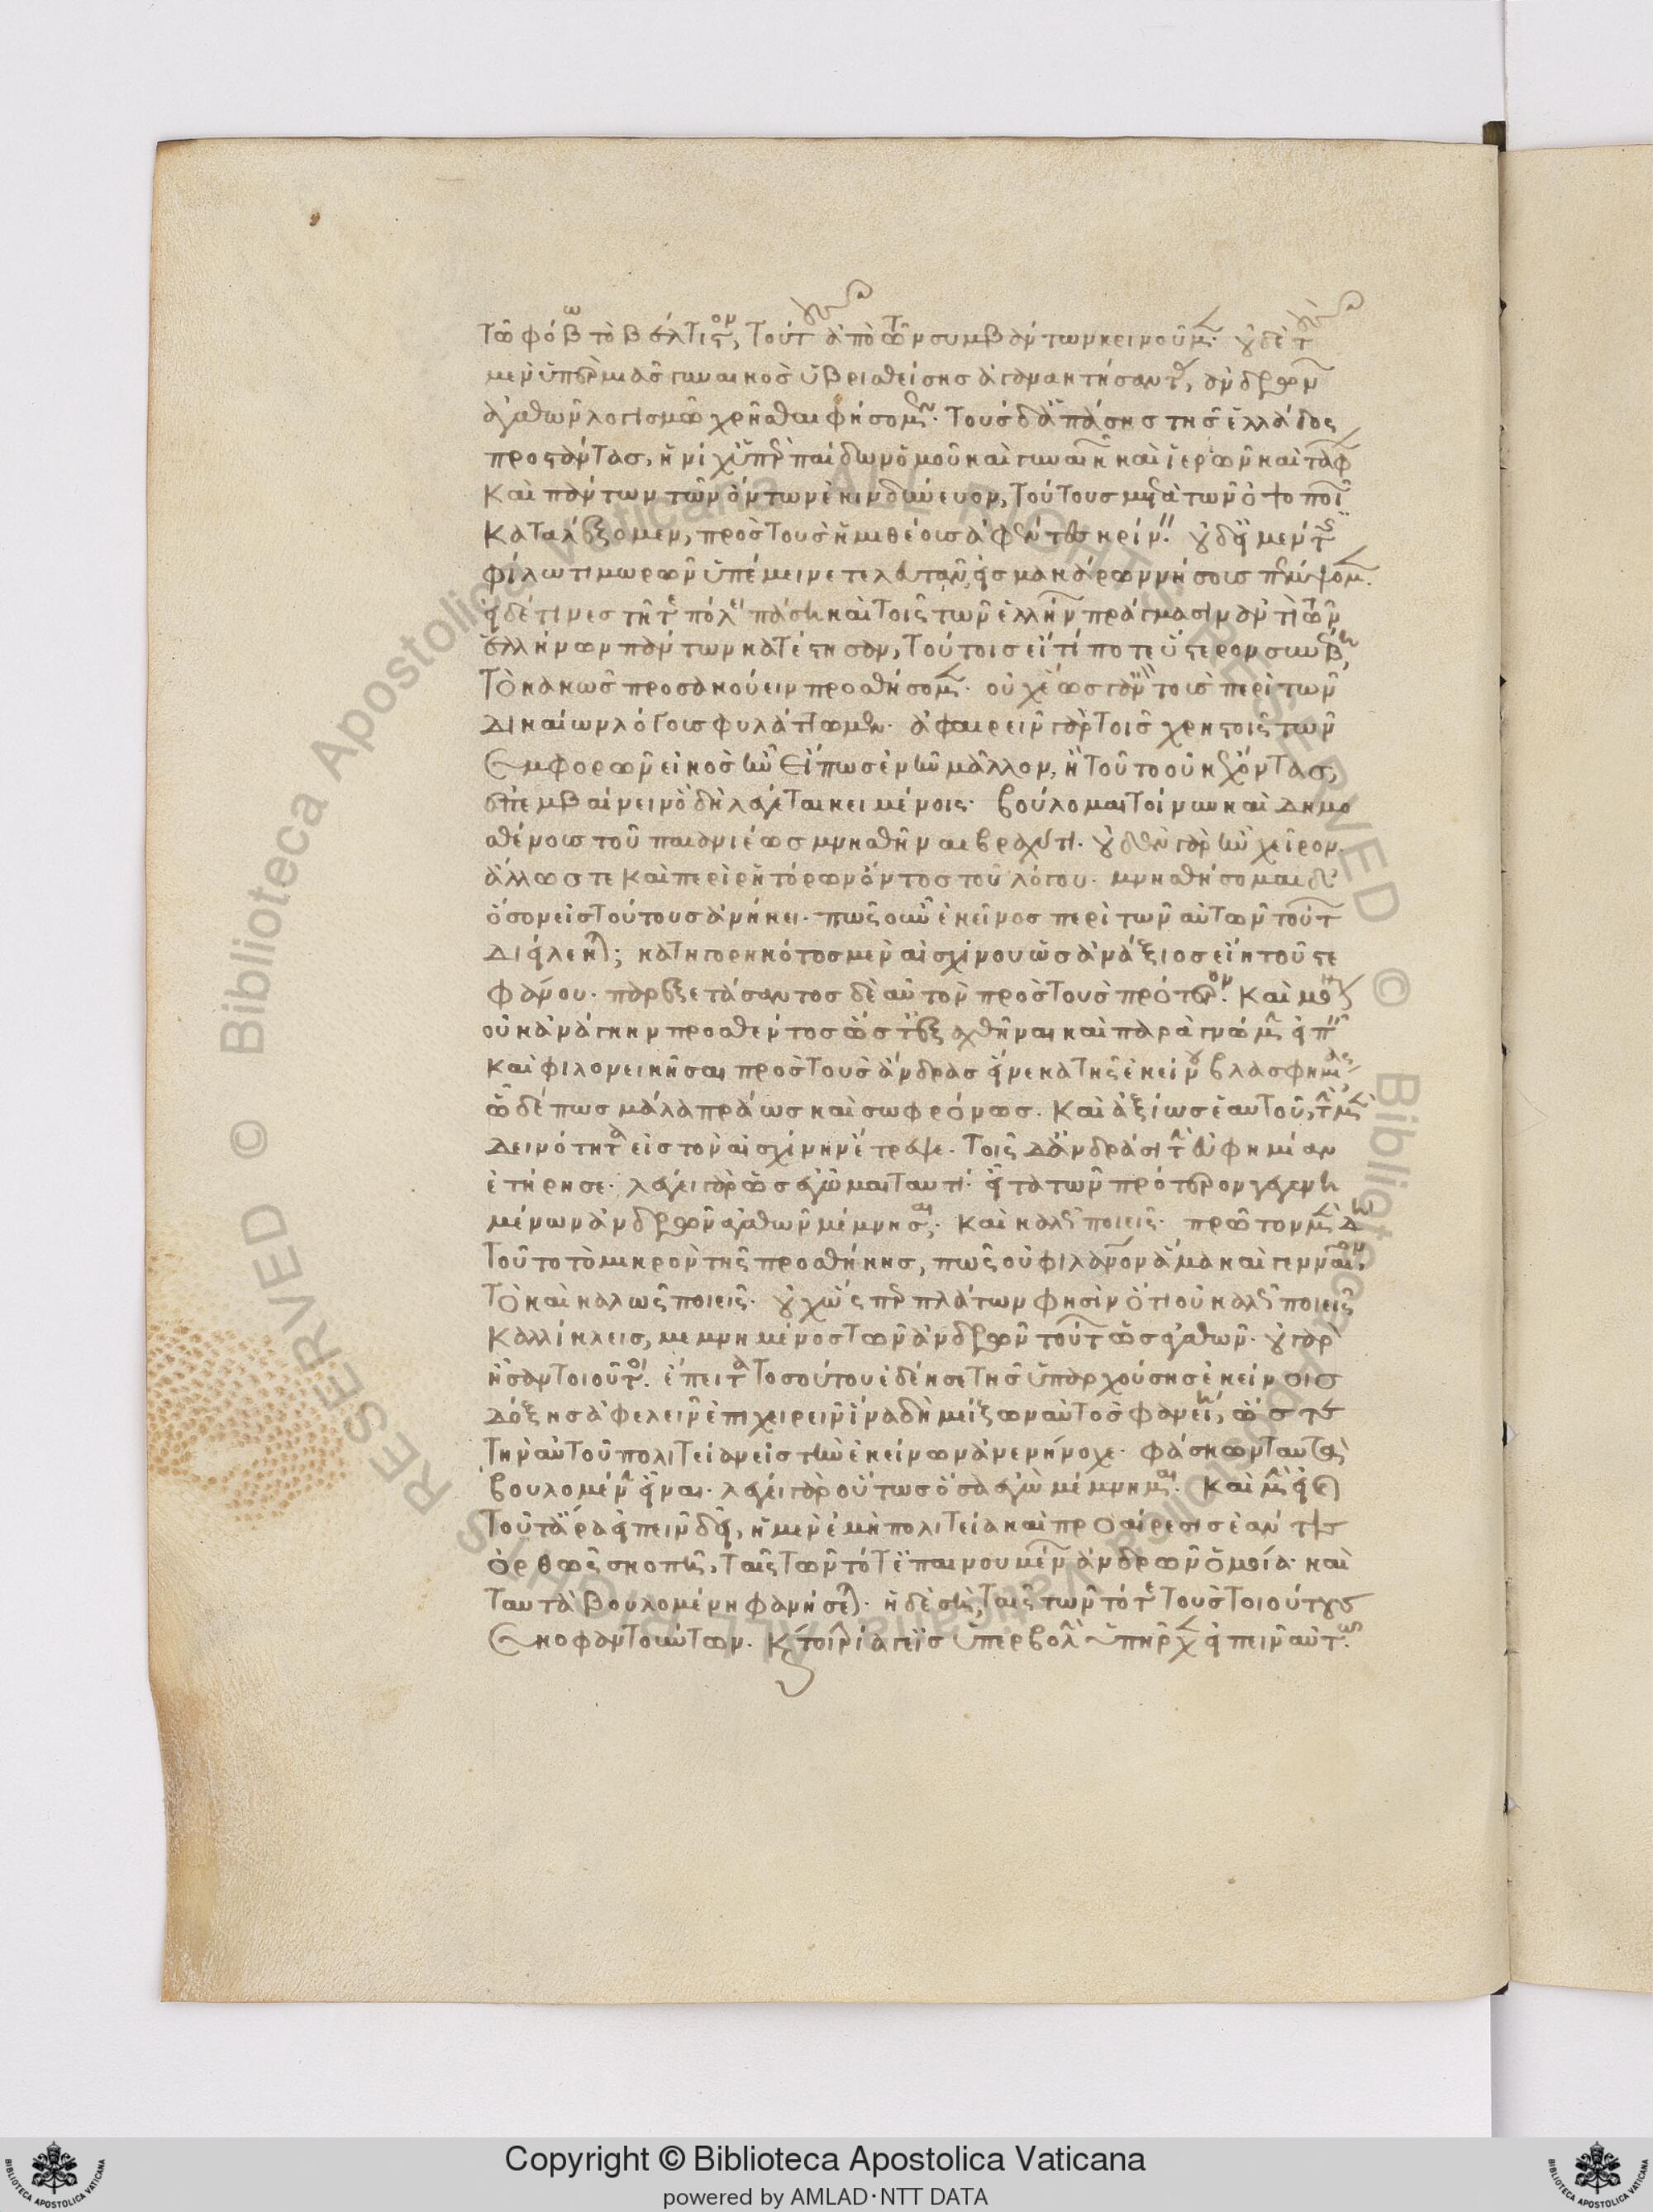 τῷ φόβῳ τὸ βέλτιστον, τούτους ἀπὸ τῶν συμβάντων κρινοῦμεν. οὐδὲ τοὺς
μὲν ὑπὲρ μιᾶς γυναικὸς ὑβρισθείσης ἀγανακτήσαντας, ἀνδρῶν
ἀγαθῶν λογισμῷ χρῆσθαι φήσομεν. τοὺς δ' ἁπάσης τῆς ἑλλάδος
προστάντας, ἡνίχ' ὑπὲρ παίδων ὁμοῦ καὶ γυναικῶν καὶ ἱερῶν καὶ τάφων
καὶ πάντων τῶν ὄντων ἐκινδύνευον, τούτους μηδὲ τῶν
καταλέξομεν, πρὸς τοὺς ἡμιθέους ἀφέντες κρίνειν. οὐδ' εἰ μέν τις
φιλοτίμως ὑπέμεινε τελευτᾶν, εἰς μακάρων νήσους πέμψομεν.
εἰ δέ τινες τῇ τε πόλει πάσῃ καὶ τοῖς τῶν ἑλλήνων πράγμασιν ἀντὶ τῶν
ἑλλήνων πάντων κατέστησαν, τούτοις εἴ τί ποτε ὕστερον συνέβη,
τὸ κακῶς προσακούειν προσθήσομεν. οὐχ ἕως γ' ἂν τοῖς περὶ τῶν
δικαίων λόγοις φυλάττωμεν. ἀφαιρεῖν γὰρ τοῖς χρηστοῖς τῶν
συμφορῶν εἰκὸς ἦν εἴπως ἐνῆν μᾶλλον, ἢ τοῦτο οὐκ ἔχοντας,
ἐπεμβαίνειν ὃ δὴ λέγεται κειμένοις. βούλομαι τοίνυν καὶ δημο
σθένους τοῦ παιανιέως μνησθῆναι βραχύ τι. οὐδὲν γὰρ ἦν χεῖρον.
ἄλλως τε καὶ περὶ ῥητόρων ὄντος τοῦ λόγου. μνησθήσομαι δὲ
ὅσον εἰς τούτους ἀνήκει. πῶς οὖν ἐκεῖνος περὶ τῶν αὐτῶν τούτων
διείλεκται; κατηγορηκότος μὲν αἰσχίνου ὡς ἀνάξιος εἴη τοῦ στε
φάνου. παρεξετάσαντος δὲ αὐτὸν πρὸς τοὺς πρότερον. καὶ
οὐκ ἀνάγκην προσθέντος ὥστ' ἐξαχθῆναι καὶ παρὰ γνώμην εἰπεῖν
καὶ φιλονεικῆσαι πρὸς τοὺς ἄνδρας εἵνεκα τῆς ἐκείνου βλασφημίας
ὧδέ πως μάλα πράως καὶ σωφρόνως. καὶ ἀξίως ἑαυτοῦ, τὴν μὲν
δεινότητα εἰς τὸν αἰσχίνην ἔτρεψε. τοῖς δ' ἀνδράσι τὴν εὐφημίαν
ἐτήρησε. λέγει γὰρ ὡς ἐγᾦμαι ταυτί. εἶτα τῶν πρότερον γεγενη
μένων ἀνδρῶν ἀγαθῶν μέμνησαι. καὶ καλῶς ποιεῖς. πρῶτον μὲν δὴ
τοῦτο τὸ μικρὸν τῆς προσθήκης, πῶς οὐ φιλάνθρωπον ἅμα καὶ γενναῖον,
τὸ καὶ καλῶς ποιεῖς. οὐχ ὥσπερ πλάτων φησὶν ὅτι οὐ καλῶς ποιεῖς
καλλίκλεις, μεμνημένος τῶν ἀνδρῶν τούτων ὡς ἀγαθῶν. οὐ γὰρ
ἦσαν τοιοῦτοι. ἔπειτα τοσούτου ἐδέησε τῆς ὑπαρχούσης ἐκείνοις
δόξης ἀφελεῖν ἐπιχειρεῖν ἵνα δὴ μείζων αὐτὸς φανείη, ὥστε
τὴν αὑτοῦ πολιτείαν εἰς τὴν ἐκείνων ἀνενήνοχε. φάσκων ταὐτὰ
βουλομένην εἶναι. λέγει γὰρ οὕτως ὅσα ἐγὼ μέμνημαι. καὶ μὴν εἰ καὶ
τοῦτ' ἄρα εἰπεῖν δεῖ, ἡ μὲν ἐμὴ πολιτεία καὶ προαίρεσις ἐάν τις
ὀρθῶς σκοπῇ, ταῖς τῶν τότ' ἐπαινουμένων ἀνδρῶν ὁμοία καὶ
ταὐτὰ βουλομένη φανήσεται. ἡ δὲ σὴ, ταῖς τῶν τότε τοὺς τοιούτους
συκοφαντούντων. καίτοι γ' εἴς ὑπερβολὴν ὑπῆρχεν εἰπεῖν αὐτῷ.